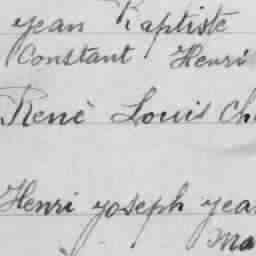 yean Baptiste
Constant Henri
René Louis Ch
Henri yoseph yea
Ma